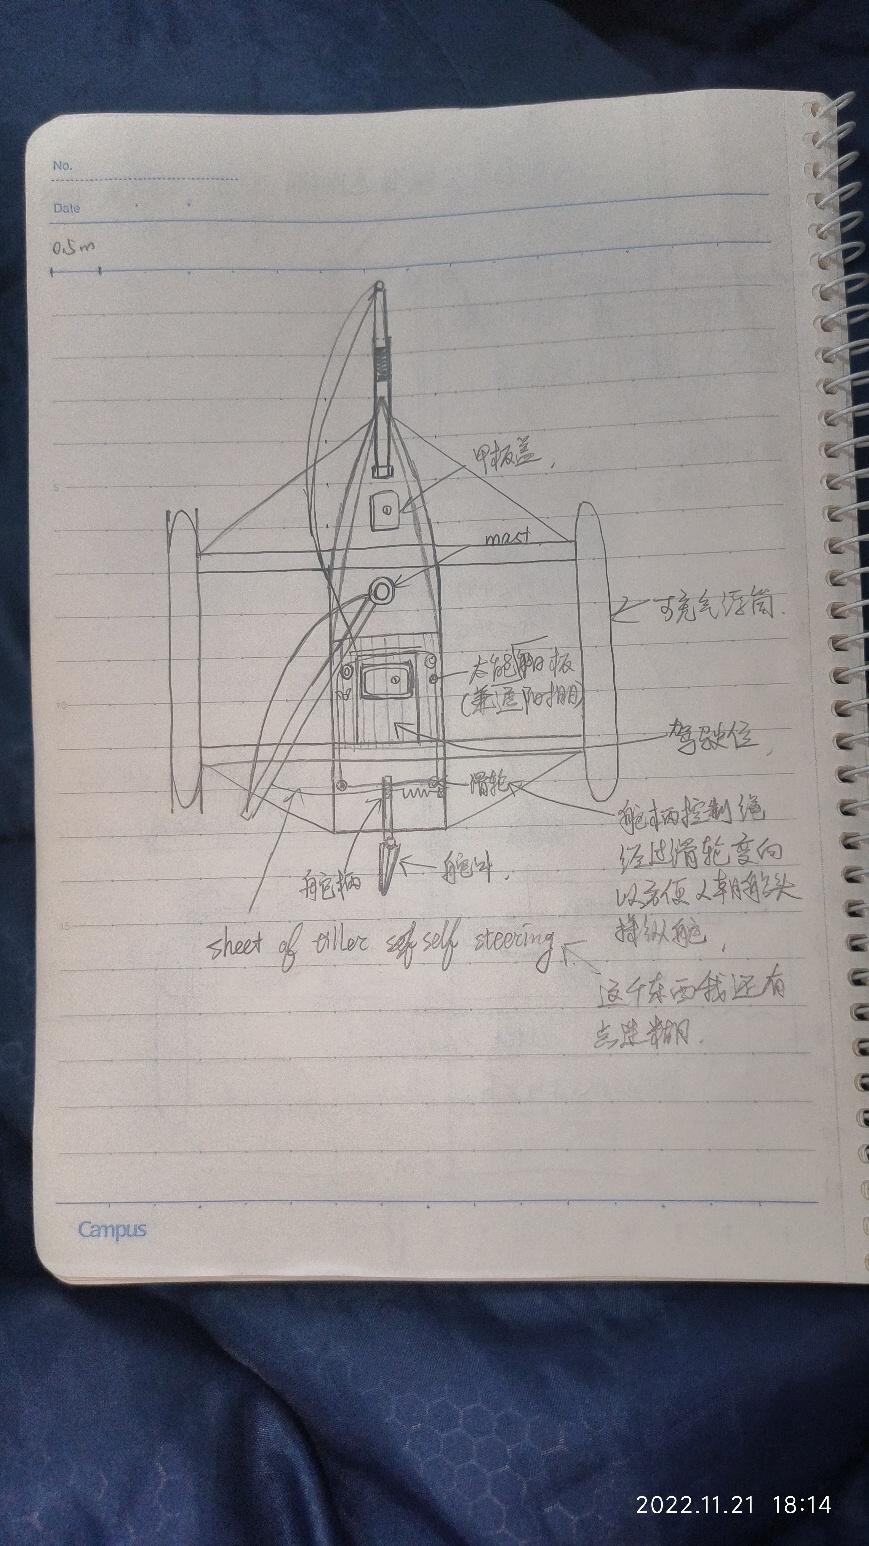 No.
Date
0.5m
5
甲板盖.
mast
可充气浮筒.
太阳能板
(兼遮阳棚)
10
驾驶位.
滑轮
舵柄控制绳
经过滑轮变向
以方便人朝船头
操纵舵.
舵柄
舵叶.
15
sheet of tiller self steering
这个东西我还有
点迷糊.
Campus
2022.11.21 18:14